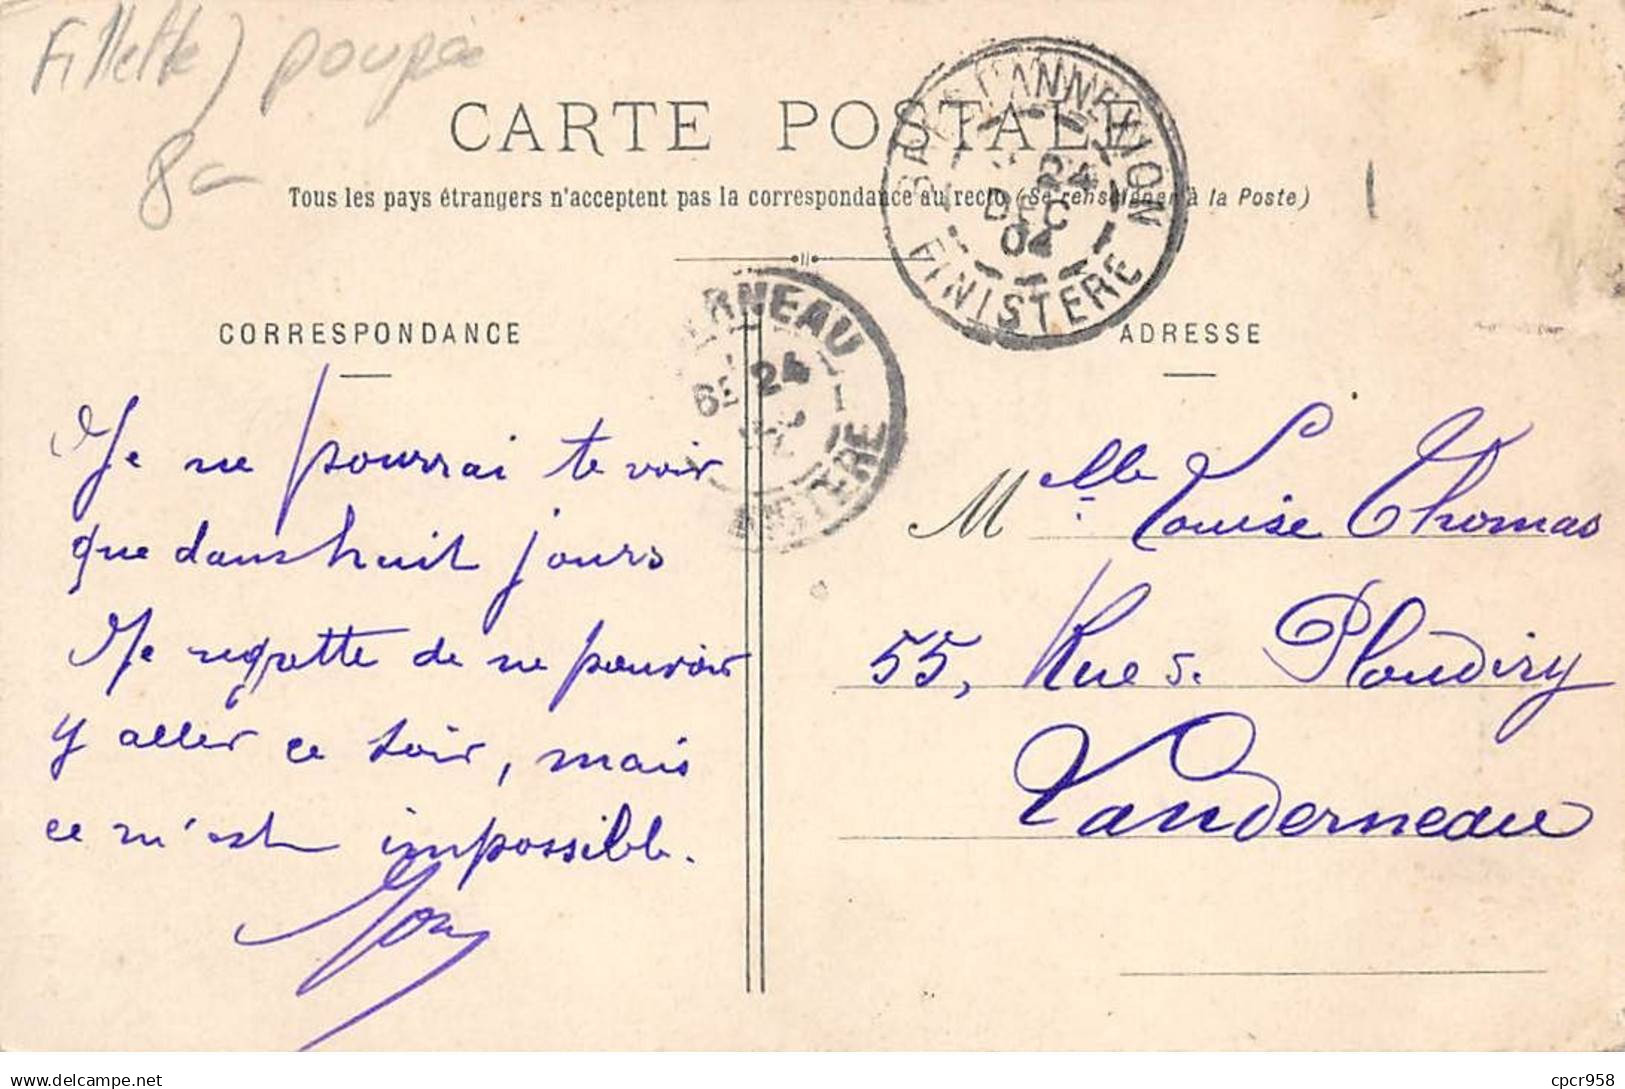 Fillette) poupée
8-
CARTE POSTALE
Tous les pays étrangers n'acceptent pas la correspondance au recto (Se renseigner à la Poste)
FINISTERE
24
DEC
04
CORRESPONDANCE
ADRESSE
RNEAU
24
Je ne pourrai te voir
que dans huit jours
Je regrette de ne pouvoir
y aller ce soir, mais
ce m'est impossible.
Mlle Louise Thomas
55, Rue Ploudiry
Landerneau
cpcr958